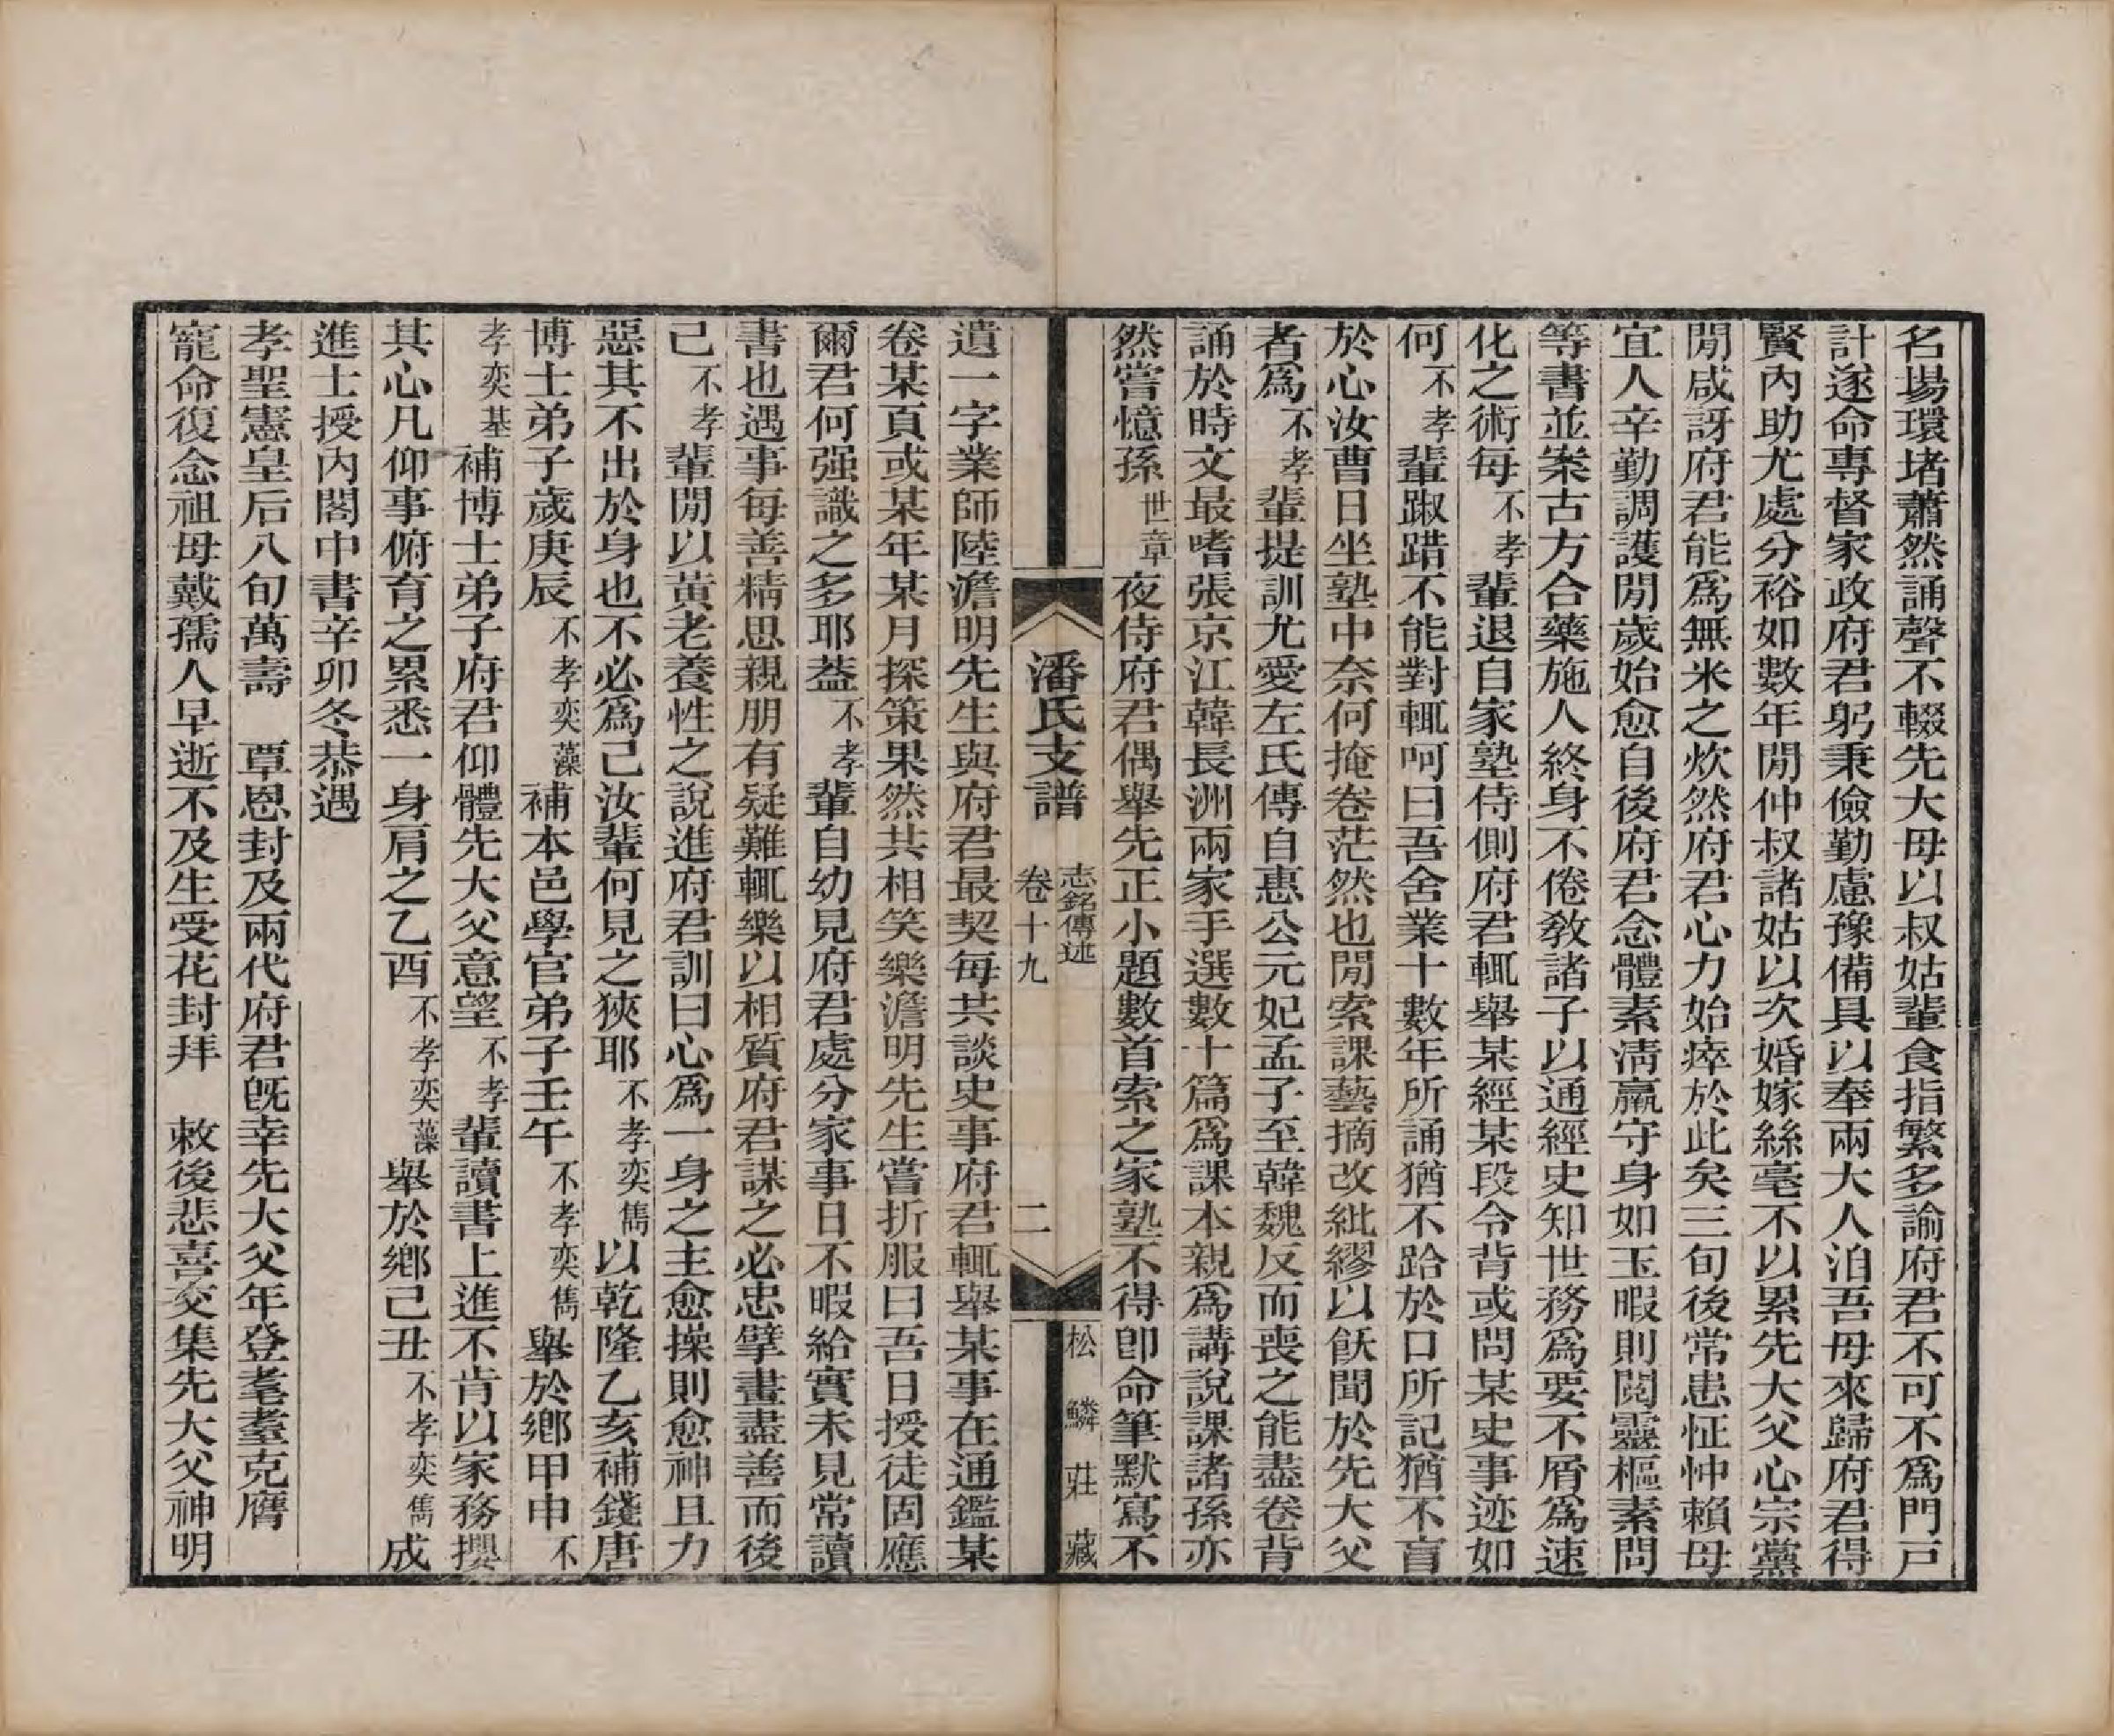 名場環堵蕭然誦聲不輟先大母以叔姑輩食指繁多諭府君不可不爲門戸
計遂命專督家政府君躬秉儉勤慮豫備具以奉兩大人洎吾母來歸府君得
賢內助尤處分裕如數年閒仲叔諸姑以次婚嫁絲毫不以累先大父心宗黨
閒咸訝府君能爲無米之炊然府君心力始瘁於此矣三旬後常患怔忡賴母
宜人辛勤調護閒歲始愈自後府君念體素清羸守身如玉暇則閱靈樞素問
等書並案古方合藥施人終身不倦敎諸子以通經史知世務爲要不屑爲速
化之術每不孝輩退自家塾侍側府君輒舉某經某段令背或問某史事迹如
何不孝輩踧踖不能對輒呵曰吾舍業十數年所誦猶不跲於口所記猶不盲
於心汝曹日坐塾中奈何掩卷茫然也閒索課藝摘改紕繆以飫聞於先大父
者爲不孝輩提訓尤愛左氏傳自惠公元妃孟子至韓魏反而喪之能盡卷背
誦於時文最嗜張京江韓長洲兩家手選數十篇爲課本親爲講說課諸孫亦
然嘗憶孫世章夜侍府君偶舉先正小題數首索之家塾不得卽命筆默寫不
潘氏支譜
志銘傳述
卷十九
二
松鱗莊藏
遺一字業師陸澹明先生與府君最契每共談史事府君輒舉某事在通鑑某
卷某頁或某年某月探策果然共相笑樂澹明先生嘗折服曰吾日授徒固應
爾君何强識之多耶葢不孝輩自幼見府君處分家事日不暇給實未見常讀
書也遇事每善精思親朋有疑難輒樂以相質府君謀之必忠擘畫盡善而後
己不孝輩閒以黃老養性之說進府君訓曰心爲一身之主愈操則愈神且力
惡其不出於身也不必爲己汝輩何見之狹耶不孝奕雋以乾隆乙亥補錢唐
博士弟子歲庚辰不孝奕藻補本邑學官弟子壬午不孝奕雋舉於鄕甲申不
孝奕基補博士弟子府君仰體先大父意望不孝輩讀書上進不肯以家務攖
其心凡仰事俯育之累悉一身肩之乙酉不孝奕藻舉於鄕己丑不孝奕雋成
進士授內閣中書辛卯冬恭遇
孝聖憲皇后八旬萬壽　覃恩封及兩代府君旣幸先大父年登耄耋克膺
寵命復念祖母戴孺人早逝不及生受花封拜　敕後悲喜交集先大父神明